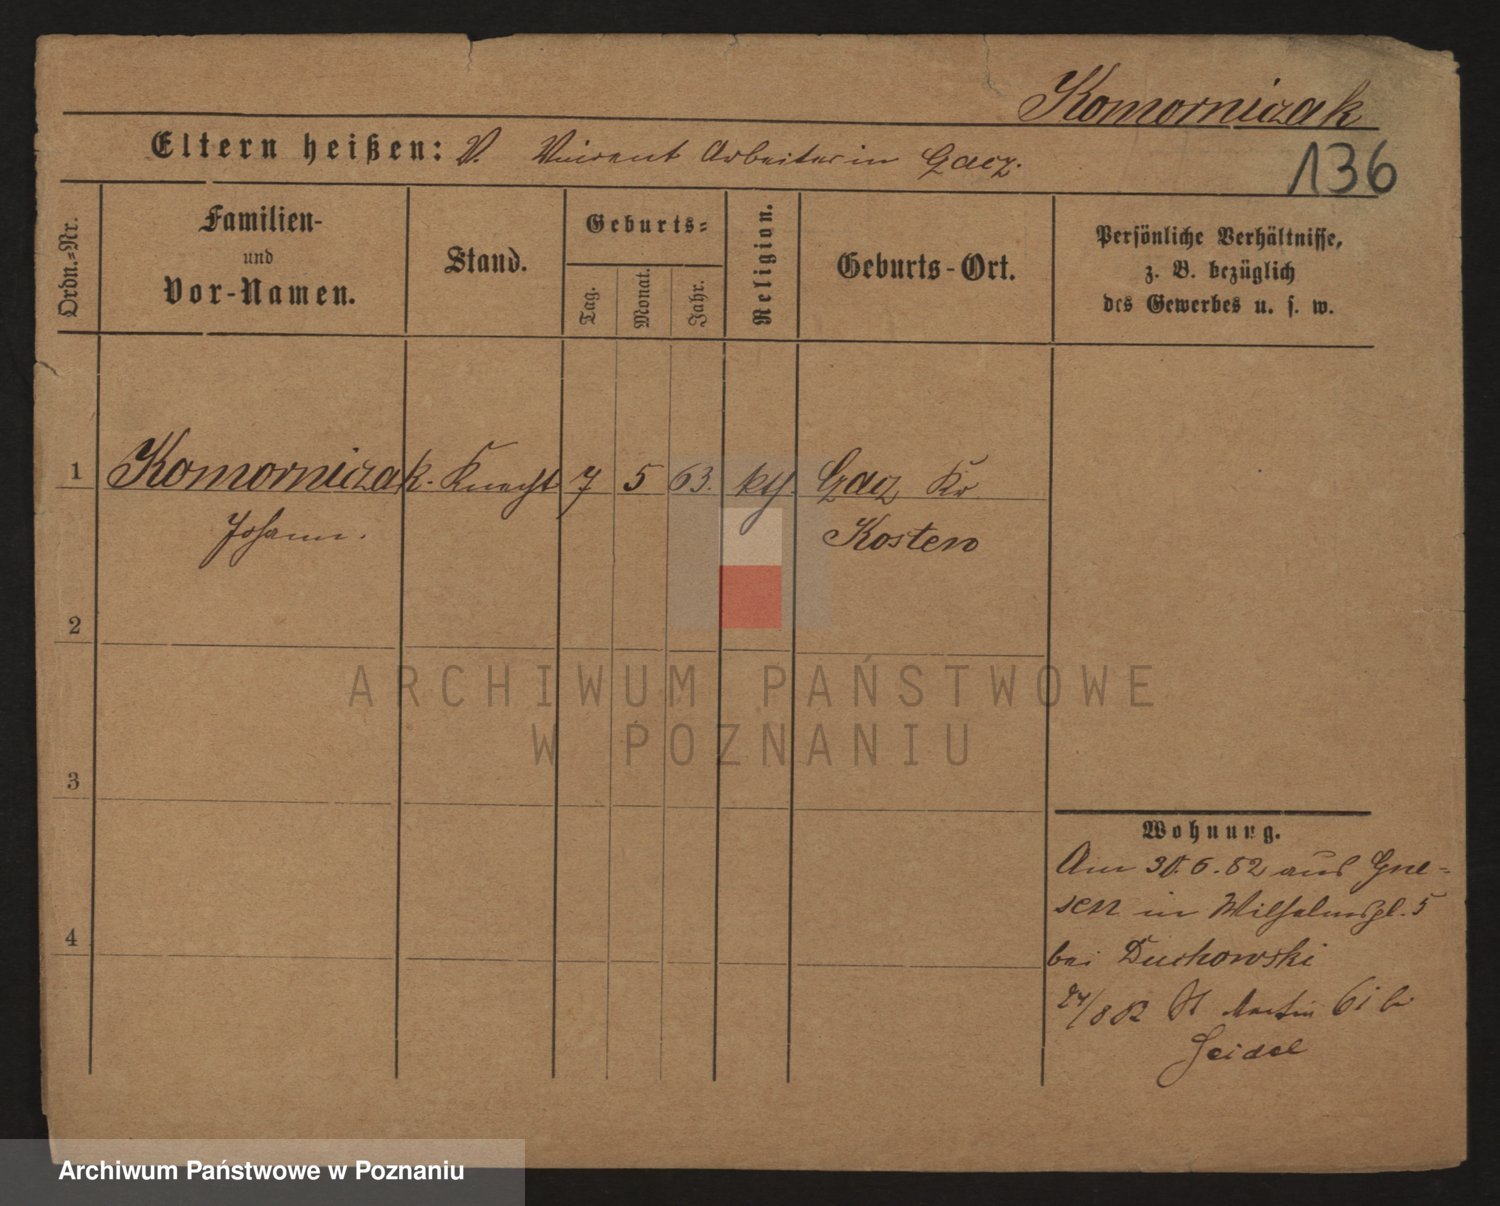 Komorniczak
Eltern heißen: V. Vincent Arbeiter in Gacz.
136
Ordn.-Nr.
Familien- und Vor-Namen.
Stand.
Geburts-
Tag.
Monat.
Jahr.
Religion.
Geburts-Ort.
Persönliche Verhältnisse,
z. B. bezüglich
des Gewerbes u. s. w.
1 Komorniczak. Knecht 7 5 63. kth. Gacz Kr
Johann. Kosten
2
3
4
Wohnung.
Am 30.6.82 aus Gne-
sen in Wilhelmspl. 5
bei Duchowski
24/8 82 St Martin 61 b
Seidel
ARCHIWUM PAŃSTWOWE
W POZNANIU
Archiwum Państwowe w Poznaniu